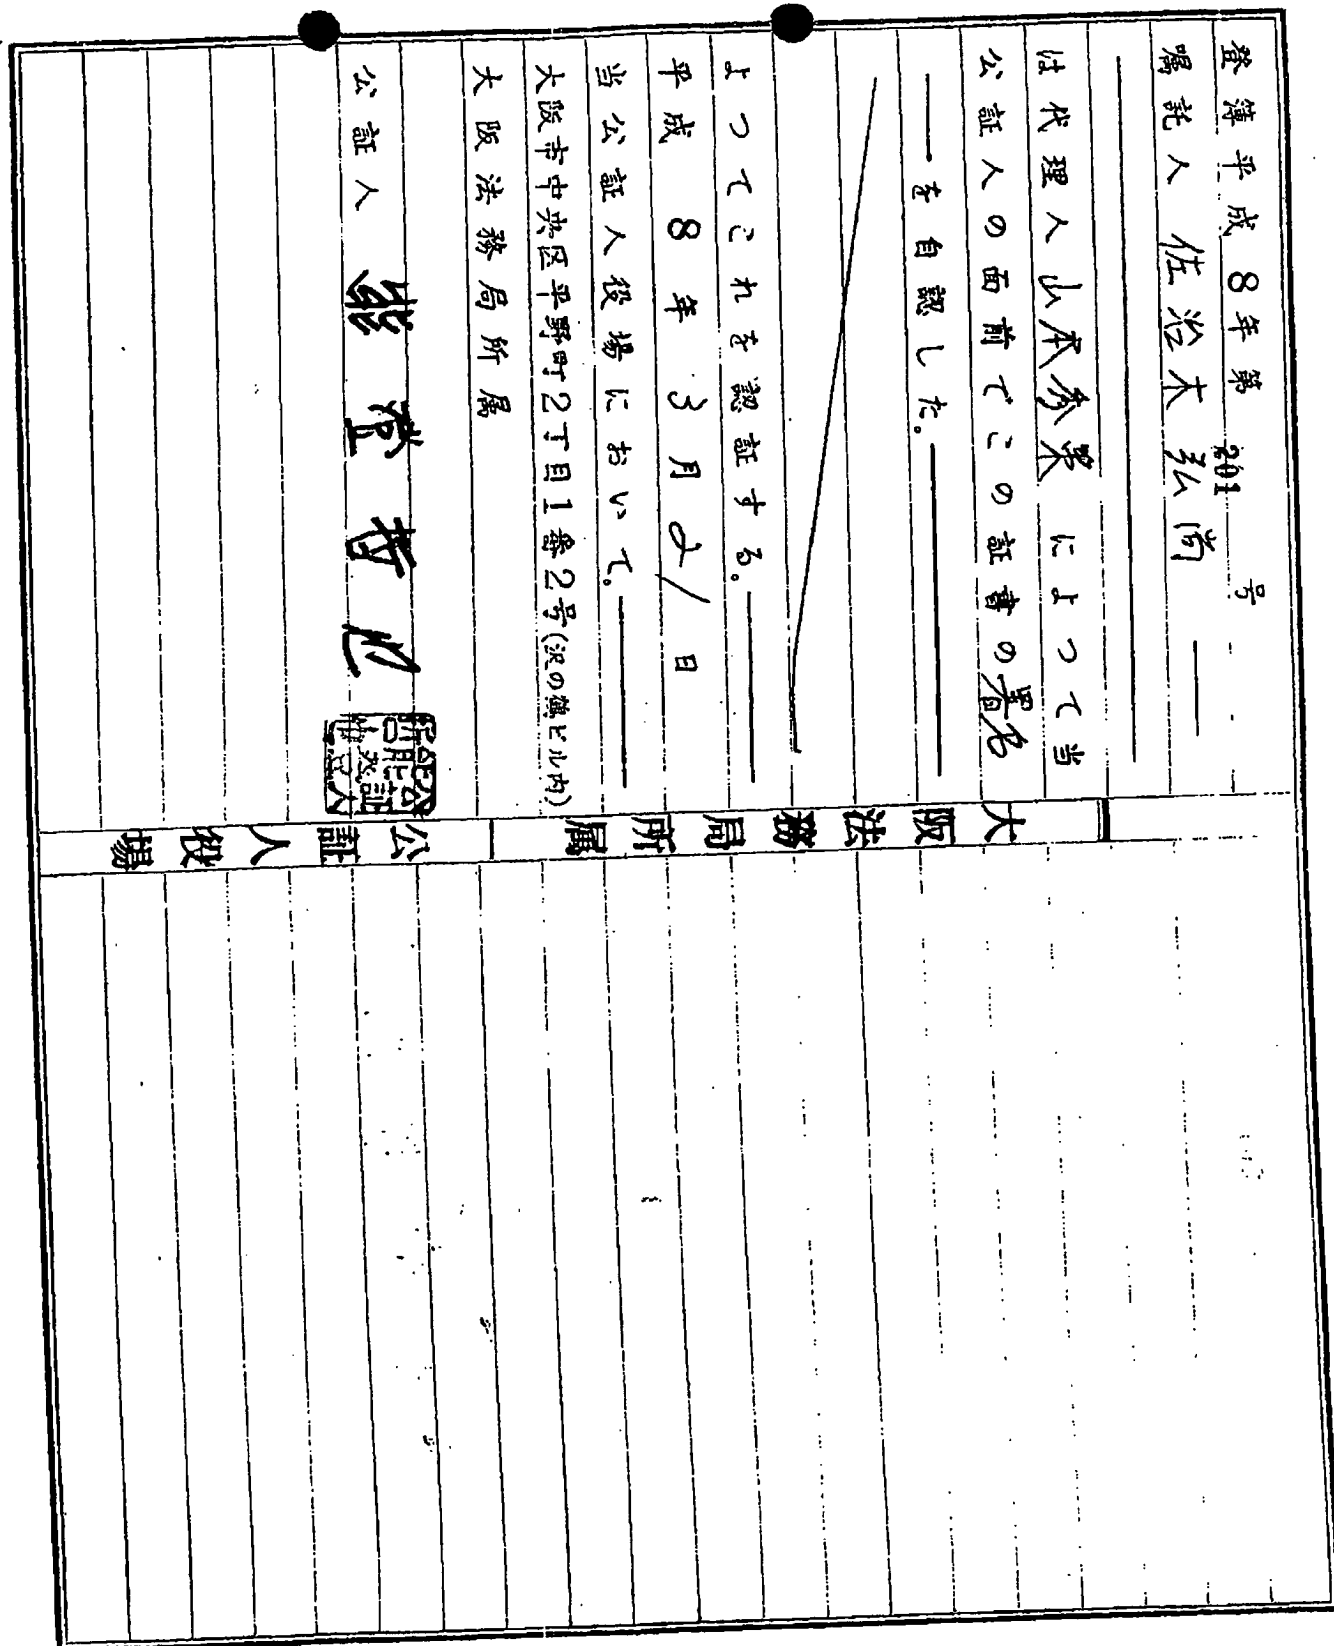 登簿平成8年第 201 号
嘱託人 佐治木 弘尚
は代理人 山本 によって当
公証人の面前でこの証書の署名
を自認した。
よってこれを認証する。
平成 8年 3月 21日
当公証人役場において。
大阪市中央区平野町2丁目1番2号(沢の鶴ビル内)
大阪法務局所属
公証人
大阪法務局所属 公証人役場